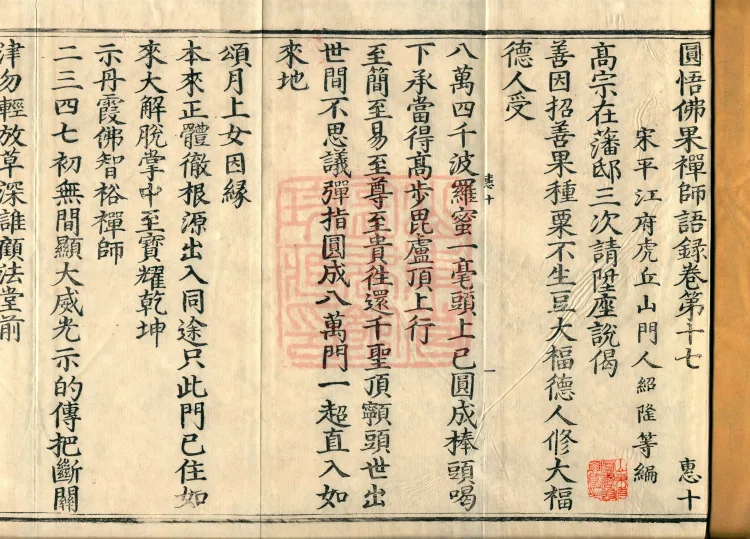 圓悟佛果禪師語錄卷第十七 惠十
宋平江府虎丘山門人紹隆等編
高宗在藩邸三次請陞座說偈
善因招善果種粟不生豆大福德人修大福
德人受
惠十
一
八萬四千波羅蜜一毫頭上已圓成棒頭喝
下承當得高步毘盧頂上行
至簡至易至尊至貴徃還千聖頂𩕳頭世出
世間不思議彈指圓成八萬門一超直入如
來地
頌月上女因緣
本來正體徹根源出入同途只此門已住如
來大解脫掌中至寶耀乾坤
示丹霞佛智裕禪師
二三四七初無間顯大威光示的傳把斷關
津勿輕放草深誰顧法堂前